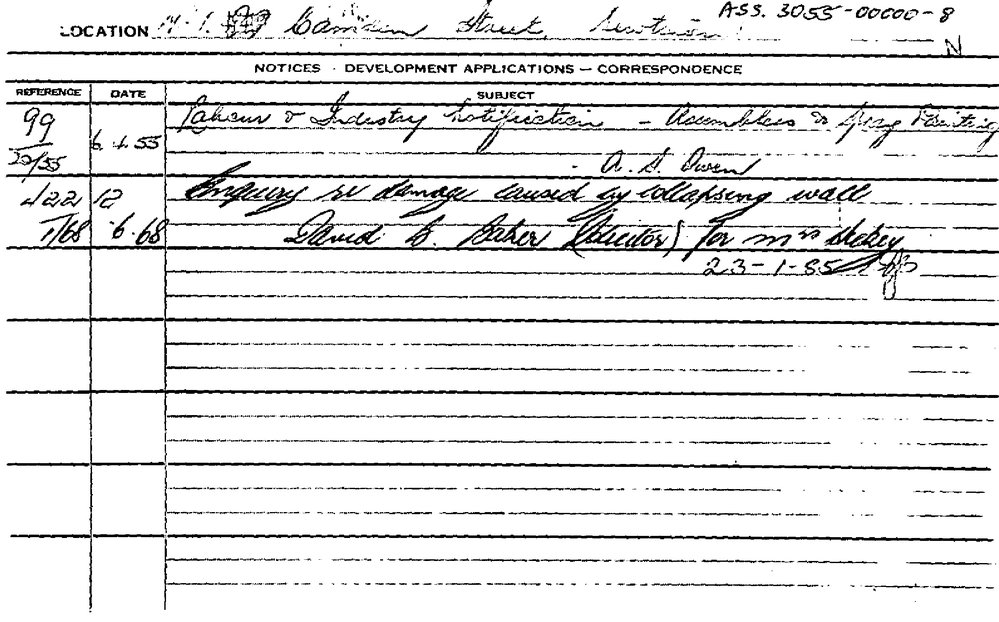 ASS. 3055-00000-8
LOCATION Camden Street, Newtown
N
NOTICES - DEVELOPMENT APPLICATIONS - CORRESPONDENCE
REFERENCE DATE SUBJECT
99 Labour & Industry Notification - Assemblers & Spray Painting
20/55 6.4.55
A. S. Owen
422 12 Enquiry re damage caused by collapsing wall
1/68 6.68 David B. Baker (Solicitor) for Mrs
23-1-85